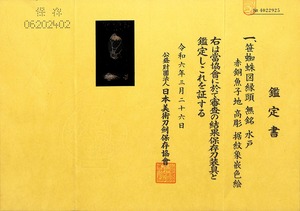 保存
06202402
№ 4022925
鑑定書
一、笹蜘蛛図縁頭 無銘 水戸
赤銅魚子地 高彫 据紋象嵌色絵
右は當協會に於て審査の結果保存刀装具と
鑑定しこれを証する
令和六年三月二十六日
公益財團法人 日本美術刀劍保存協會